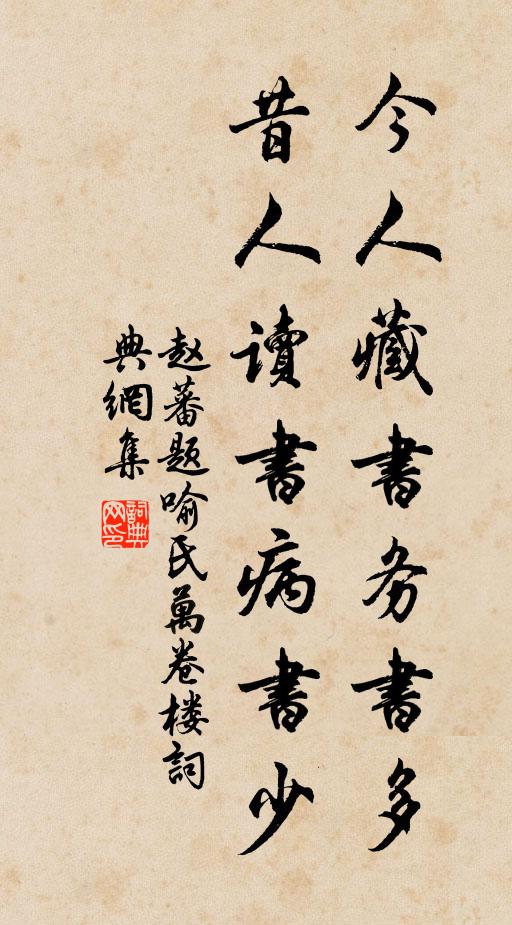 今人藏書务書多
昔人读書病書少
赵蕃题喻氏萬卷楼詞
典網集
詞典網印